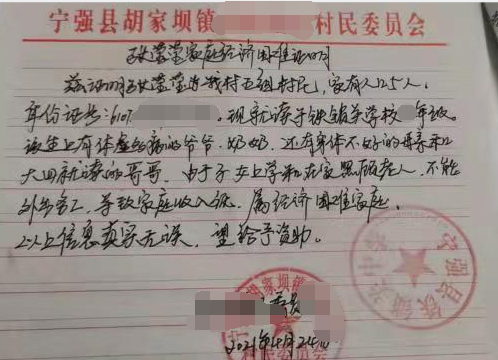 宁强县胡家坝镇 村民委员会
家庭经济困难证明
兹证明 为我村五组村民,家有人口5人,
身份证号:610 现就读于铁锁关学校 年级。
该生上有体虚多病的爷爷、奶奶,还有身体不好的母亲和
大四就读的哥哥,由于子女上学和在家照顾老人,不能
外出务工,导致家庭收入低,属经济困难家庭。
以上信息真实无误,望给予资助。
2021年4月24日
胡家坝镇
村民委员会
宁强县铁锁关